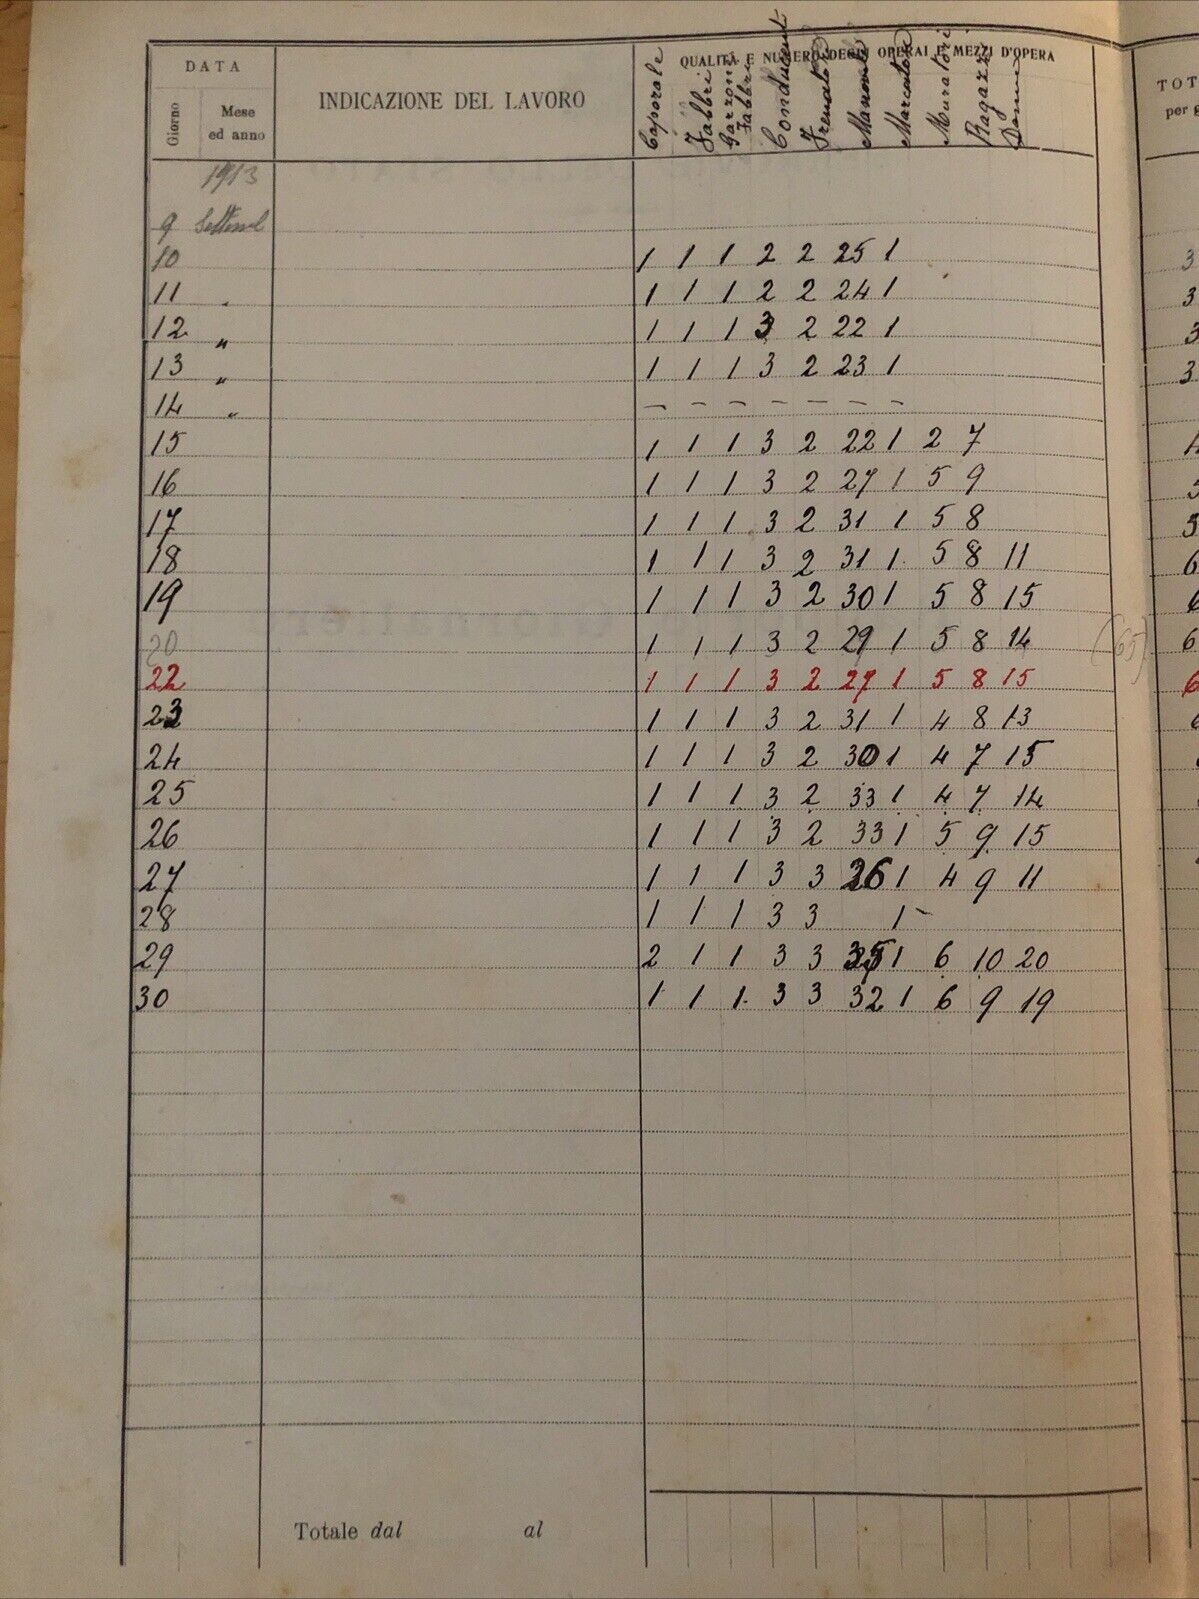 DATA
Giorno
Mese
ed anno
INDICAZIONE DEL LAVORO
QUALITÀ E NUMERO DEGLI OPERAI E MEZZI D'OPERA
Caporale
Fabbri
Garzoni Fabbri
Conducenti
Frenatori
Manovale
Marcatore
Muratori
Ragazzi
Donne
TOT
per g
1913
9
10 1 1 1 2 2 25 1 3
11 " 1 1 1 2 2 24 1 3
12 " 1 1 1 3 2 22 1 3
13 " 1 1 1 3 2 23 1 3
14 " – – – – – – –
15 1 1 1 3 2 22 1 2 7
16 1 1 1 3 2 27 1 5 9 5
17 1 1 1 3 2 31 1 5 8 5
18 1 1 1 3 2 31 1 5 8 11 6
19 1 1 1 3 2 30 1 5 8 15 6
20 1 1 1 3 2 29 1 5 8 14 (65) 6
22 1 1 1 3 2 27 1 5 8 15 6
23 1 1 1 3 2 31 1 4 8 13 6
24 1 1 1 3 2 30 1 4 7 15
25 1 1 1 3 2 33 1 4 7 14
26 1 1 1 3 2 33 1 5 9 15
27 1 1 1 3 3 36 1 4 9 11
28 1 1 1 3 3 1 –
29 2 1 1 3 3 35 1 6 10 20
30 1 1 1 3 3 32 1 6 9 19
Totale dal al